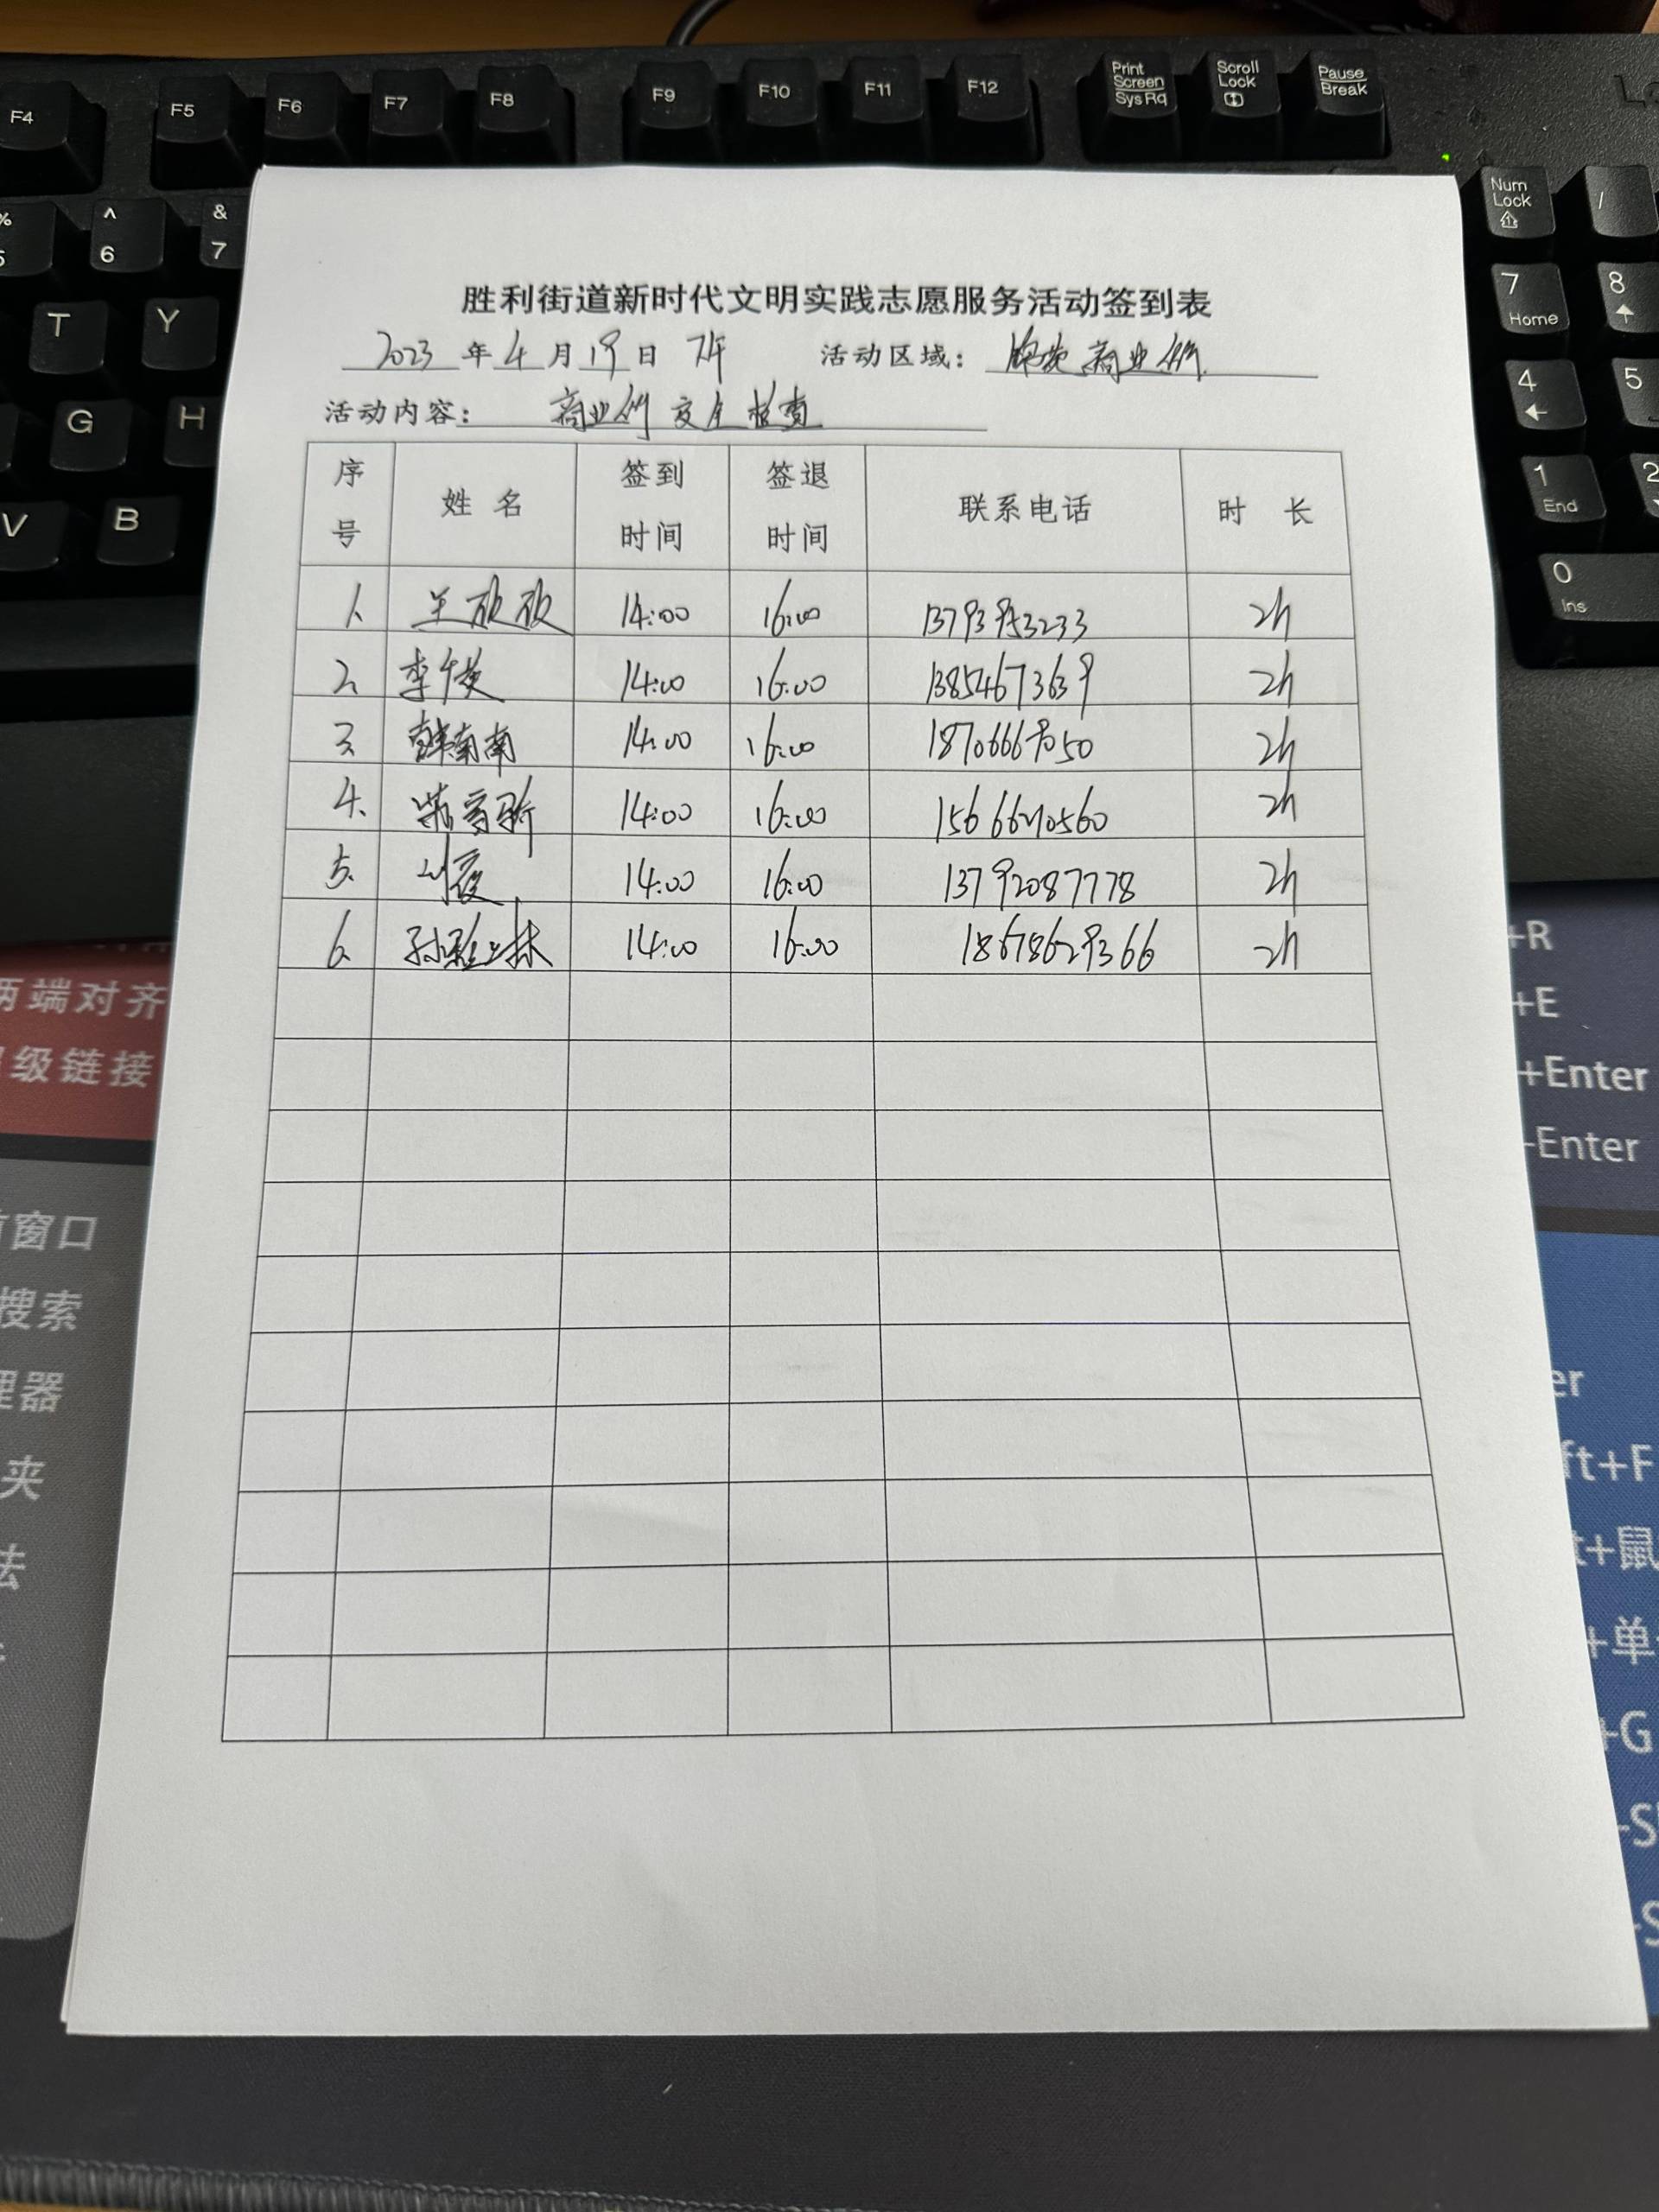 F4 F5 F6 F7 F8 F9 F10 F11 F12 Print Screen SysRq Scroll Lock Pause Break
% ^ 6 & 7
Num Lock /
T Y
7 Home 8
G H
4 5
V B
1 End 2
0 Ins
胜利街道新时代文明实践志愿服务活动签到表
2023 年 4 月 19 日 下午 活动区域： 商业街
活动内容： 商业街 安全检查
序号 姓名 签到时间 签退时间 联系电话 时长
1. 14:00 16:00 13793953233 2h
2. 李俊 14:00 16:00 13854673639 2h
3. 韩南南 14:00 16:00 2h
4. 14:00 16:00 2h
5. 14:00 16:00 13792087778 2h
6. 14:00 16:00 18678629366 2h
两端对齐
级链接
窗口
搜索
理器
夹
法
+R
+E
+Enter
-Enter
er
ft+F
t+鼠
+单
+G